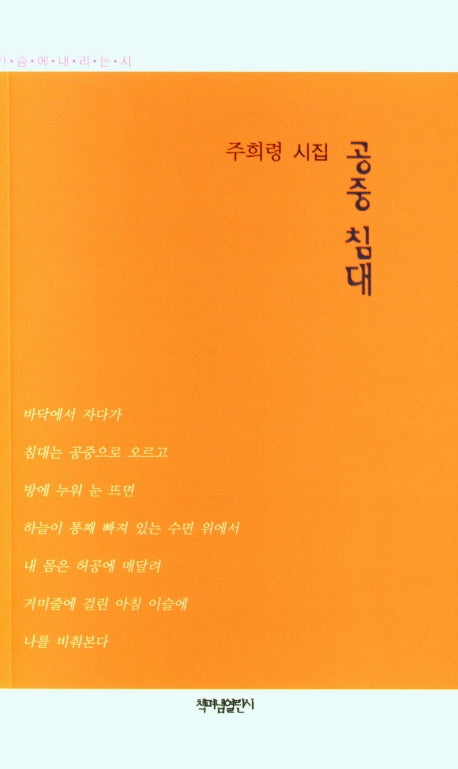 가·슴·에·내·리·는·시
주희령 시집
공중 침대
바닥에서 자다가
침대는 공중으로 오르고
방에 누워 눈 뜨면
하늘이 통째 빠져 있는 수면 위에서
내 몸은 허공에 매달려
거미줄에 걸린 아침 이슬에
나를 비춰본다
책펴냄열린시